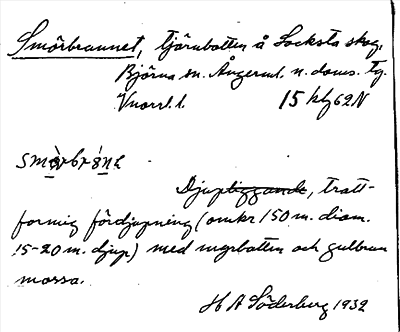 Smörbrunnet, tjärnbotten å Locksta skog,
Björna sn. Ångerml. n. doms. tg.
Vnorrl. l. 15 hfg 62 N
smòrbrónε
Djupliggande, tratt-
formig fördjupning (omkr 150 m. diam.
15-20 m. djup) med myrbotten och gulbrun
mossa.
H A Söderberg 1932